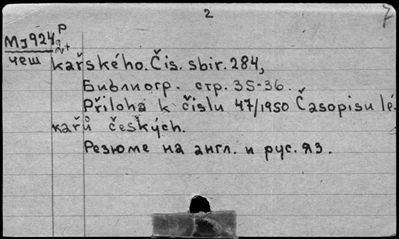 2
7
Р
Mg924
2+
чеш
kařského. Čis. sbir. 284,
Библиогр. стр. 35-36.
Příloha k číslu 47/1950 Časopisu lé-
kařů českých.
Резюме на англ. и рус. яз.